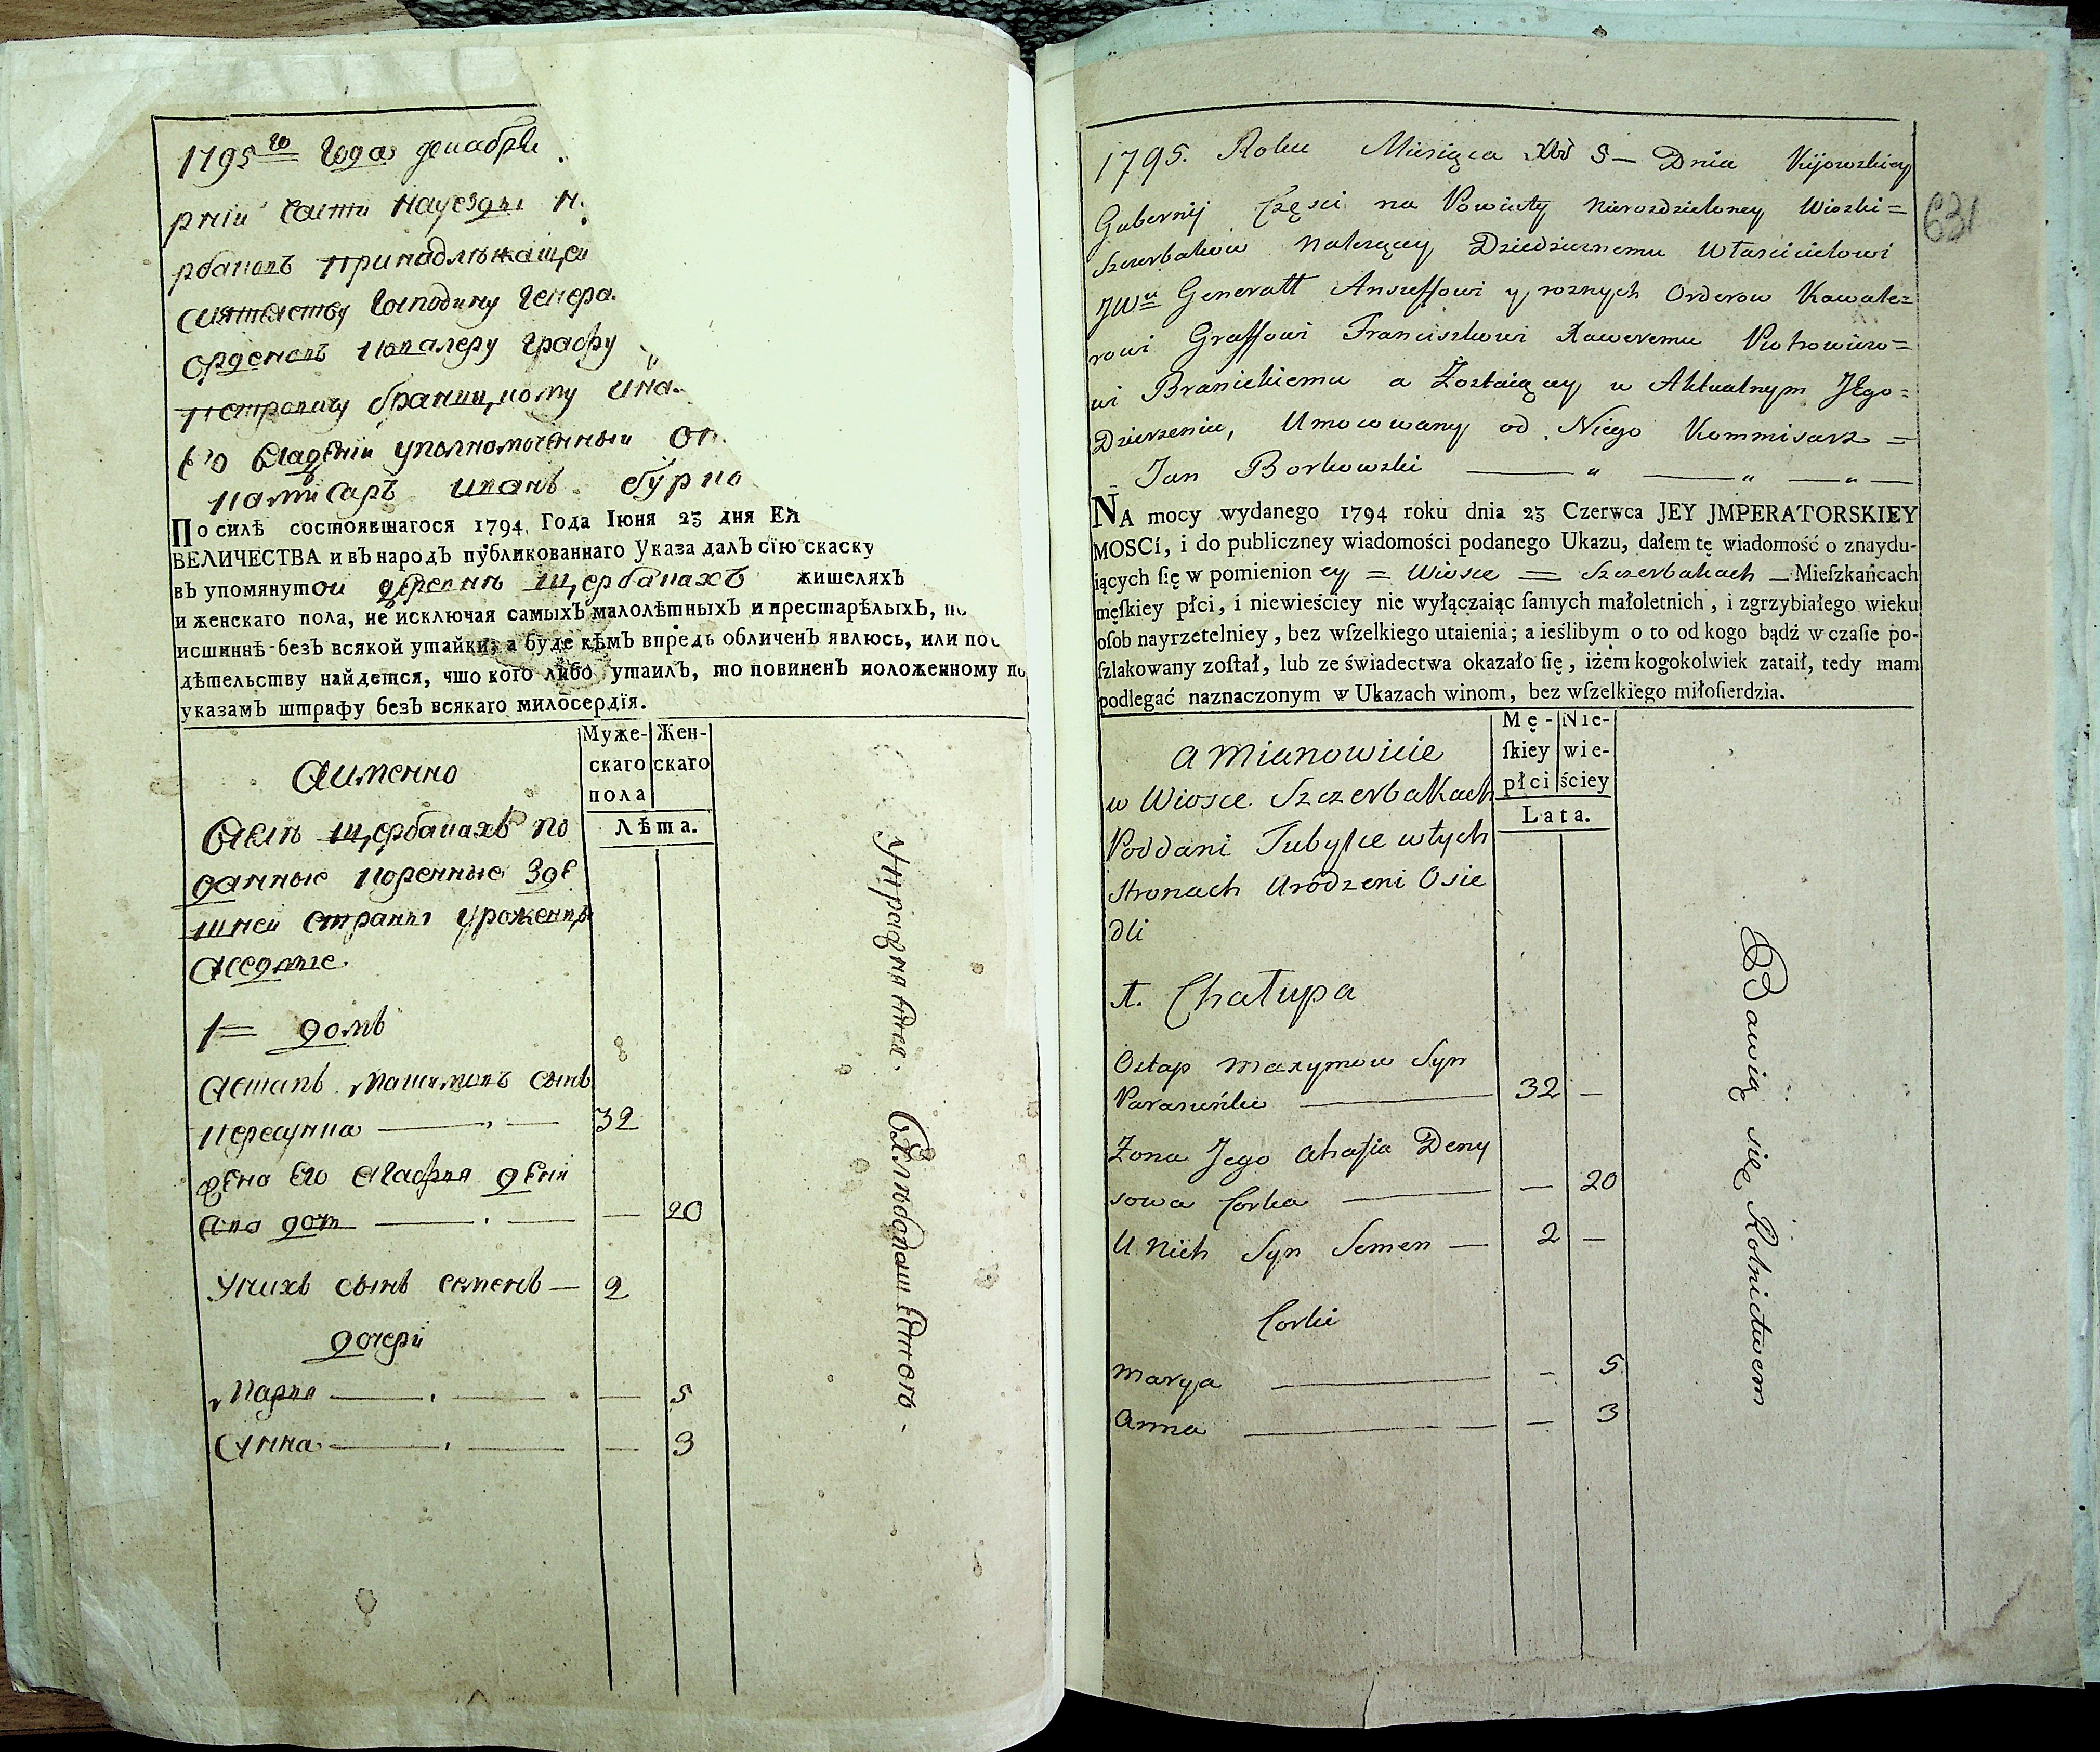 1795го Года декабря
рніи Части Науезды Н.
рбаковъ принадлежащеи
сиятелству Господину Генера.
Орденовъ Кавалеру Графу
Петровичу браницкому ина.
Его владѣніи уполномоченныи От
Камисаръ Иванъ бурко
По силѣ состоявшагося 1794 Года Іюня 23 дня ЕЯ
ВЕЛИЧЕСТВА и въ народъ публикованнаго Указа далъ сїю скаску
въ упомянутои деревнѣ щербакахъ жителяхъ
и женскаго пола, не исключая самыхъ малолѣтныхъ и престарѣлыхъ, по
истиннѣ безъ всякой утайки; а буде кѣмъ впредь обличенъ явлюсь, или по
дѣтельству найдется, что кого либо утаилъ, то повиненъ положенному по
указамъ штрафу безъ всякаго милосердїя.
Муже-скаго пола
Жен-скаго
Лѣта.
Аименно
Селѣ щербакахъ по
данные коренные Зде
шнеи страны уроженцы
Аседлые.
1= домъ
Астапъ Максимовъ сынъ
Пересунка — 32
жена Его Агафия дени
сова доч — 20
Унихъ сынъ семенъ — 2
дочери
Мария — 5
Анна — 3
1795. Roku Miesiąca Xbr 5 — Dnia Kijowskiey
Gubernij Części na Powiaty nierozdzieloney Wioski =
Szczerbaków Należącey Dziedzicznemu Właścicielowi
JWu Generałł Anszeffowi y roznych Orderow Kawale=
rowi Graffowi Franciszkowi Xaweremu Piotrowiczo=
wi Branickiemu a Zostaiącey w Aktualnym JEgo=
Dzierzeniu, Umocowany od Niego Kommisarz =
Jan Borkowski
NA mocy wydanego 1794 roku dnia 23 Czerwca JEY JMPERATORSKIEY
MOSCí, i do publiczney wiadomości podanego Ukazu, dałem tę wiadomość o znaydu-
iących ſię w pomienion ey = Wiosce = Szczerbakach — Mieſzkańcach
męſkiey płci, i niewieściey nie wyłączaiąc ſamych małoletnich, i zgrzybiałego wieku
oſob nayrzetelniey, bez wſzelkiego utaienia; a ieślibym o to od kogo bądź w czaſie po-
ſzlakowany zoſtał, lub ze świadectwa okazało ſię, iżem kogokolwiek zataił, tedy mam
podlegać naznaczonym w Ukazach winom, bez wſzelkiego miłoſierdzia.
Mę-ſkiey płci
Nie-wie-ściey
Lata.
a Mianowicie
w Wiosce Szczerbakach
Poddani Tubylce wtych
stronach Urodzeni Osie
dli
1. Chałupa
Ostap Maxymow Syn
Parasuńka — 32 —
Żona Jego Ahafia Deny
sowa Corka — — 20
U Nich Syn Semen — 2 —
Corki
Marya — — 5
Anna — — 3
Bawią się Rolnictwem
631